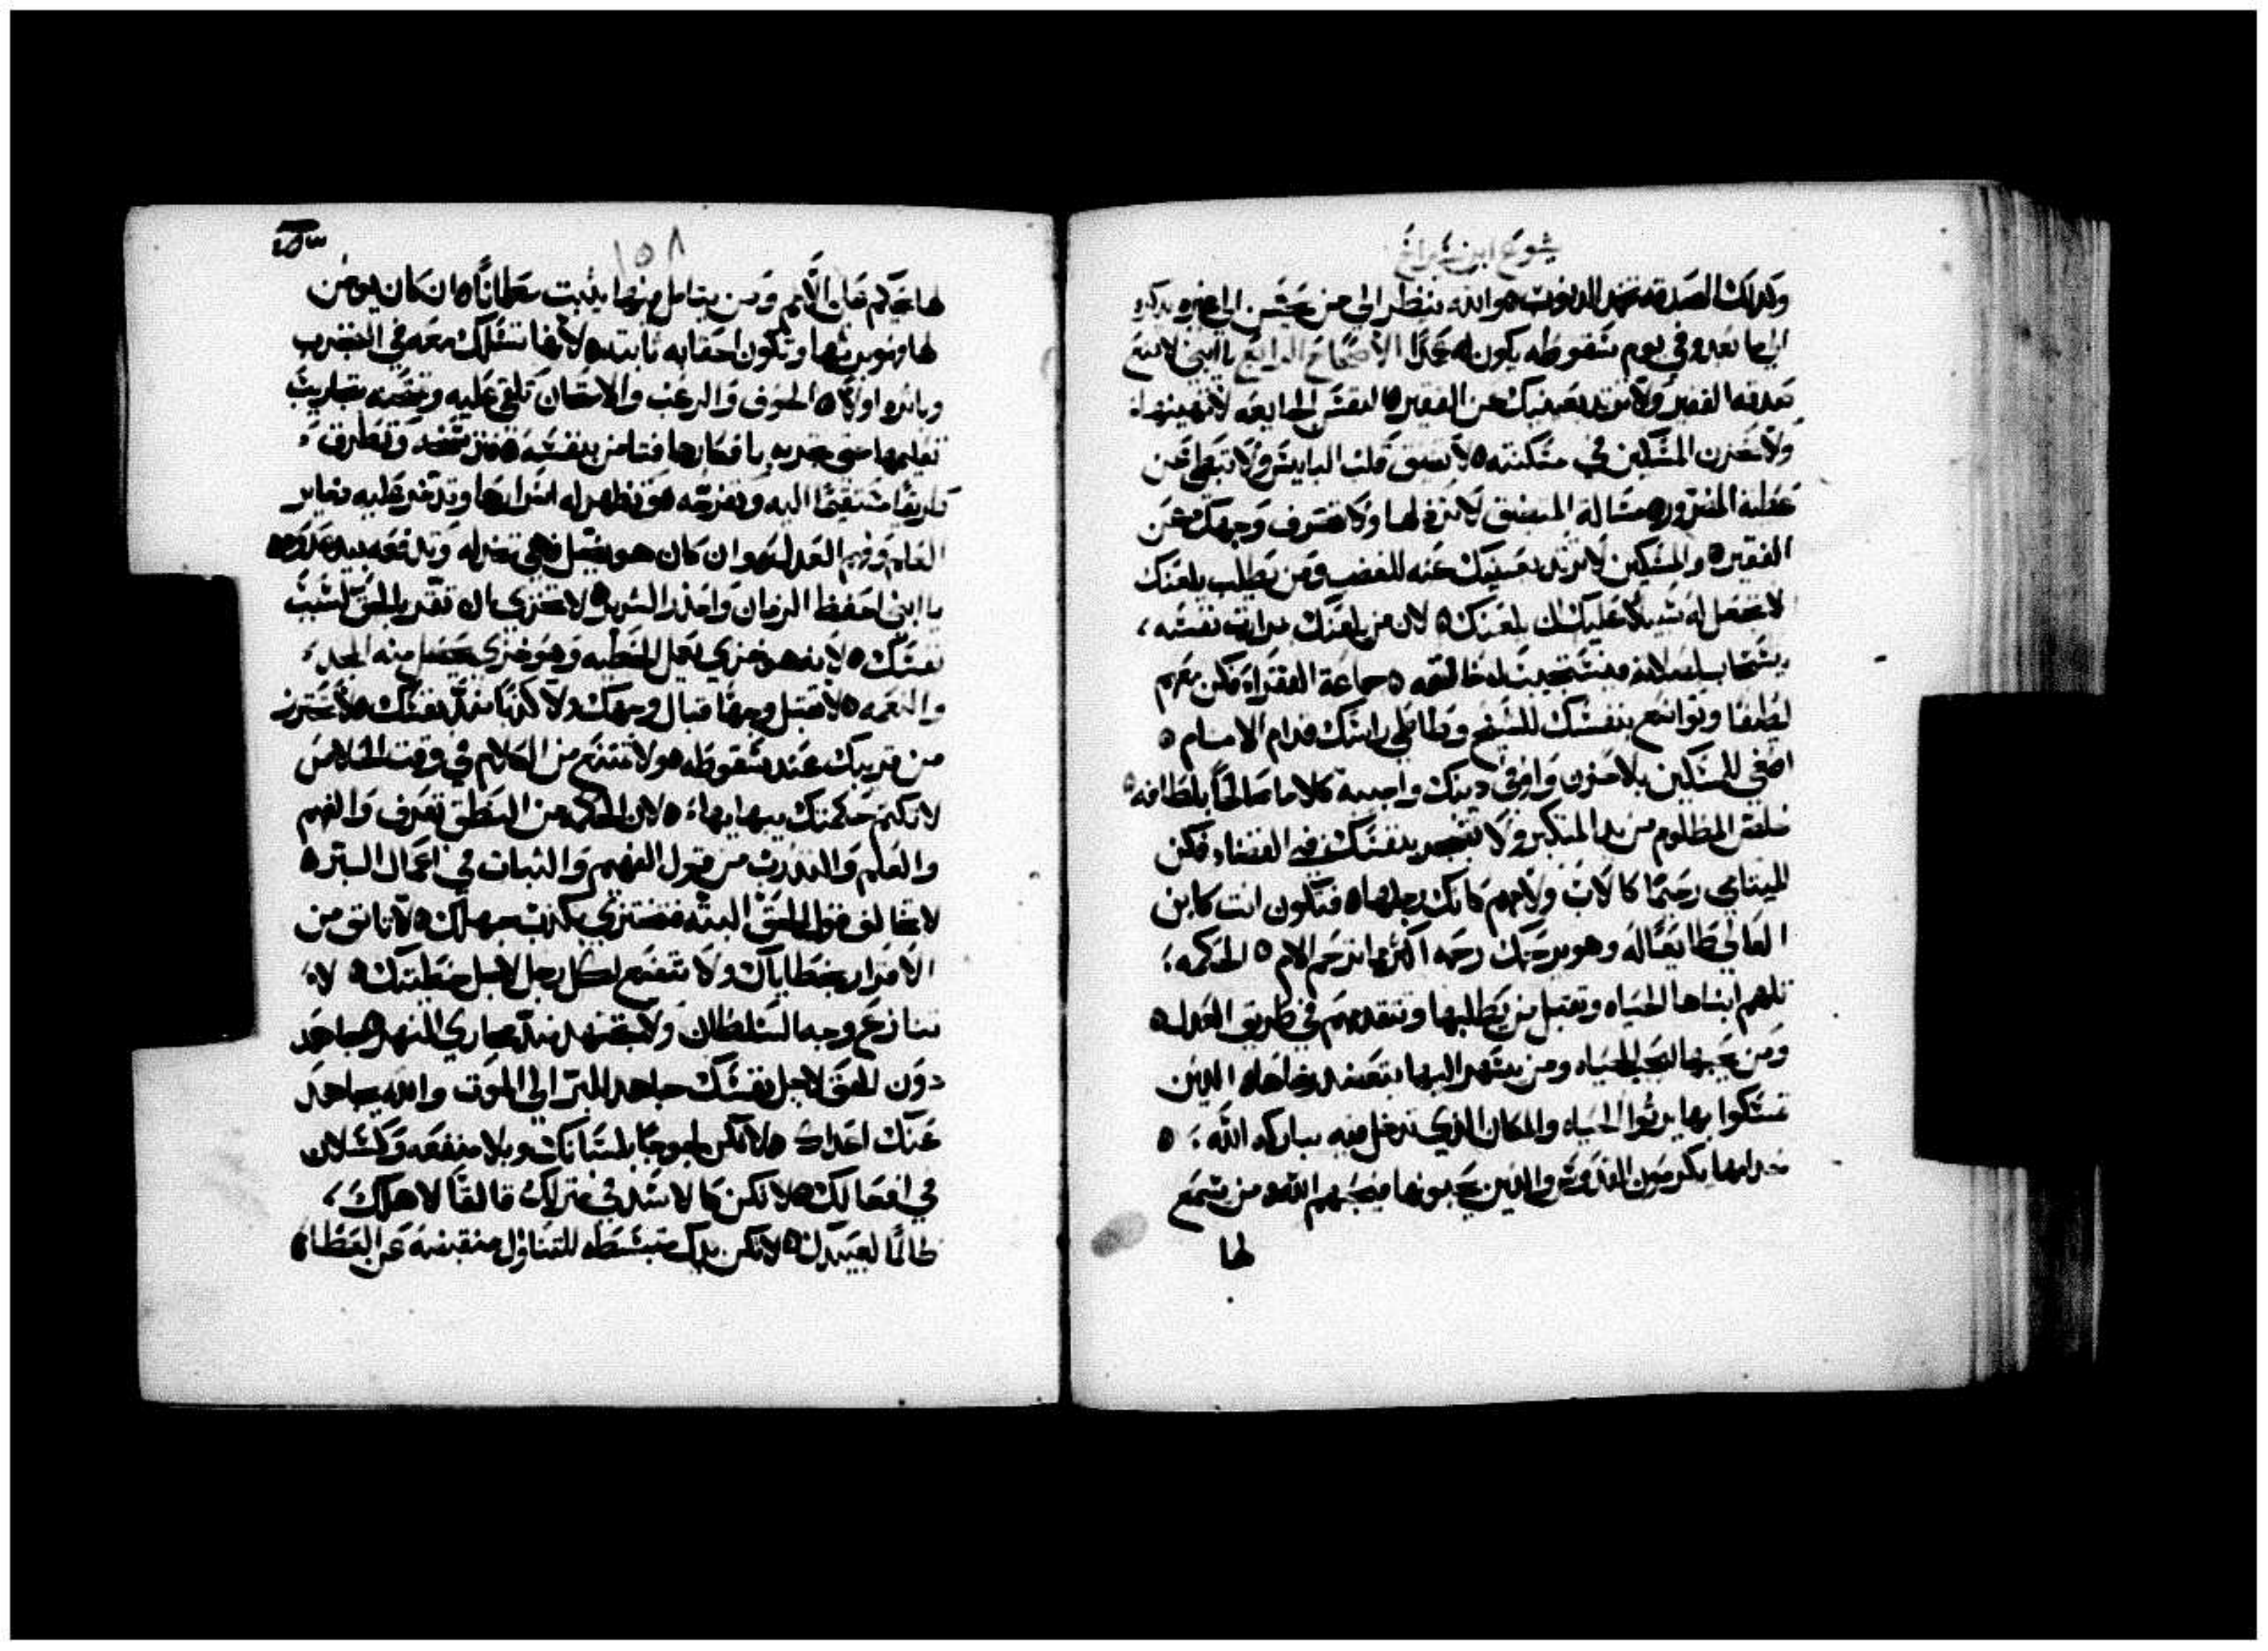 يشوع ابن شيراخ
وكذلك الصدقه تخمد الذنوب هو الله ينظر الى من يحسن الى غيره يذكره
الى ما بعد وفي يوم سقوطه يكون له عمدا الاصحاح الرابع يا ابني لا تمنع
صدقه الفقير ولا ترد عينيك عن الفقير النفس الجايعه لا تهينها
ولا تحزن المسكين في مسكنته لا تضيق قلب البايس ولا تبطي عن
عطية المضرور مسالة المتضيق لا ترذلها ولا تصرف وجهك عن
الفقير والمسكين لا ترد عينيك عنه للغضب ومن يطلب يلعنك
لا تجعل له سبيلا عليك ان يلعنك لان من يلعنك بمرارت نفسه
يستجاب لعنه لانه يستجيب له خالقه جماعة الفقراء فكن معهم
لطيفا وتواضع بنفسك للشيخ وطاطي راسك قدام الانسام
اصغي للمسكين بلا حزن واوفي دينك واجيبه كلاما صالحا بلطافه
خلص المظلوم من يد المتكبر ولا تضجر بنفسك في القضاء فكن
لليتامي رحيما كالاب ولامهم كانك رجلها فتكون انت كابن
العالي طايعا له وهو يرحمك رحمه اكثر مما ترحم الام الحكمه
تلهم ابناها الحياه وتقبل من يطلبها وتتقدمهم في طريق العدل
ومن يحبها يحب الحياه ومن يسهر اليها يتعضد برضاها الذين
تمسكوا بها يرثوا الحياه والمكان الذي تدخل فيه يباركه الله
خدامها يكونون القدوس والذين يحبونها فيحبهم الله من يسمع
لها
١٥٨
لها يحكم على الامم ومن يتامل فيها يثبت مطمانا ان كان يومن
لها فهو يرثها وتكون احقابه ثابته لانها تسلك معه في التجارب
وباتره اولا الخوف والرعب والامتحان تلقي عليه وتمتحنه بتجاريب
تعليمها حتى تجربه بافكارها فتامن بنفسه ثم تثبته وتطرق
طريقا مستقيما اليه وتفرحه وتظهر له اسرارها وتدخر عليه دخاير
العلم وفهم العدل وان كان هو يضل فهي تخذله وتدفعه بيد عدوه
يا ابني احفظ الزمان واحذر الشر لا تخزي ان تقر بالحق لسبب
نفسك لانه هو خزي يجلب الخطيه وهو خزي يحصل منه المجد
والنعمه لا تقبل وجها قبال وجهك ولا كذبا ضد نفسك لا تحترز
من قريبك عند سقوطه ولا تمتنع من الكلام في وقت الخلاص
لا تكتم حكمتك ببهايها لان الحكمه من النطق تعرف والفهم
والعلم والتدريب من قول الفهيم والثبات في اعمال البر
لا تخالف قول الحق البته فتخزي بكذب جهلك لا تانف من
الاقرار بخطاياك ولا تخضع لكل رجل لاجل خطيتك لا
تنازع وجه السلطان ولا تجتهد ضد مجاري النهر جاهد
دون الحق لاجل نفسك جاهد للبر الي الموت والله يجاهد
عنك اعداك لا تكن لجوجا بلسانك وبلا منفعه وكسلان
في افعالك لا تكن كالاسد في منزلك قالقا لاهلك
ظالما لعبيدك لا تكن يدك منبسطه للتناول منقبضه عن العطاء